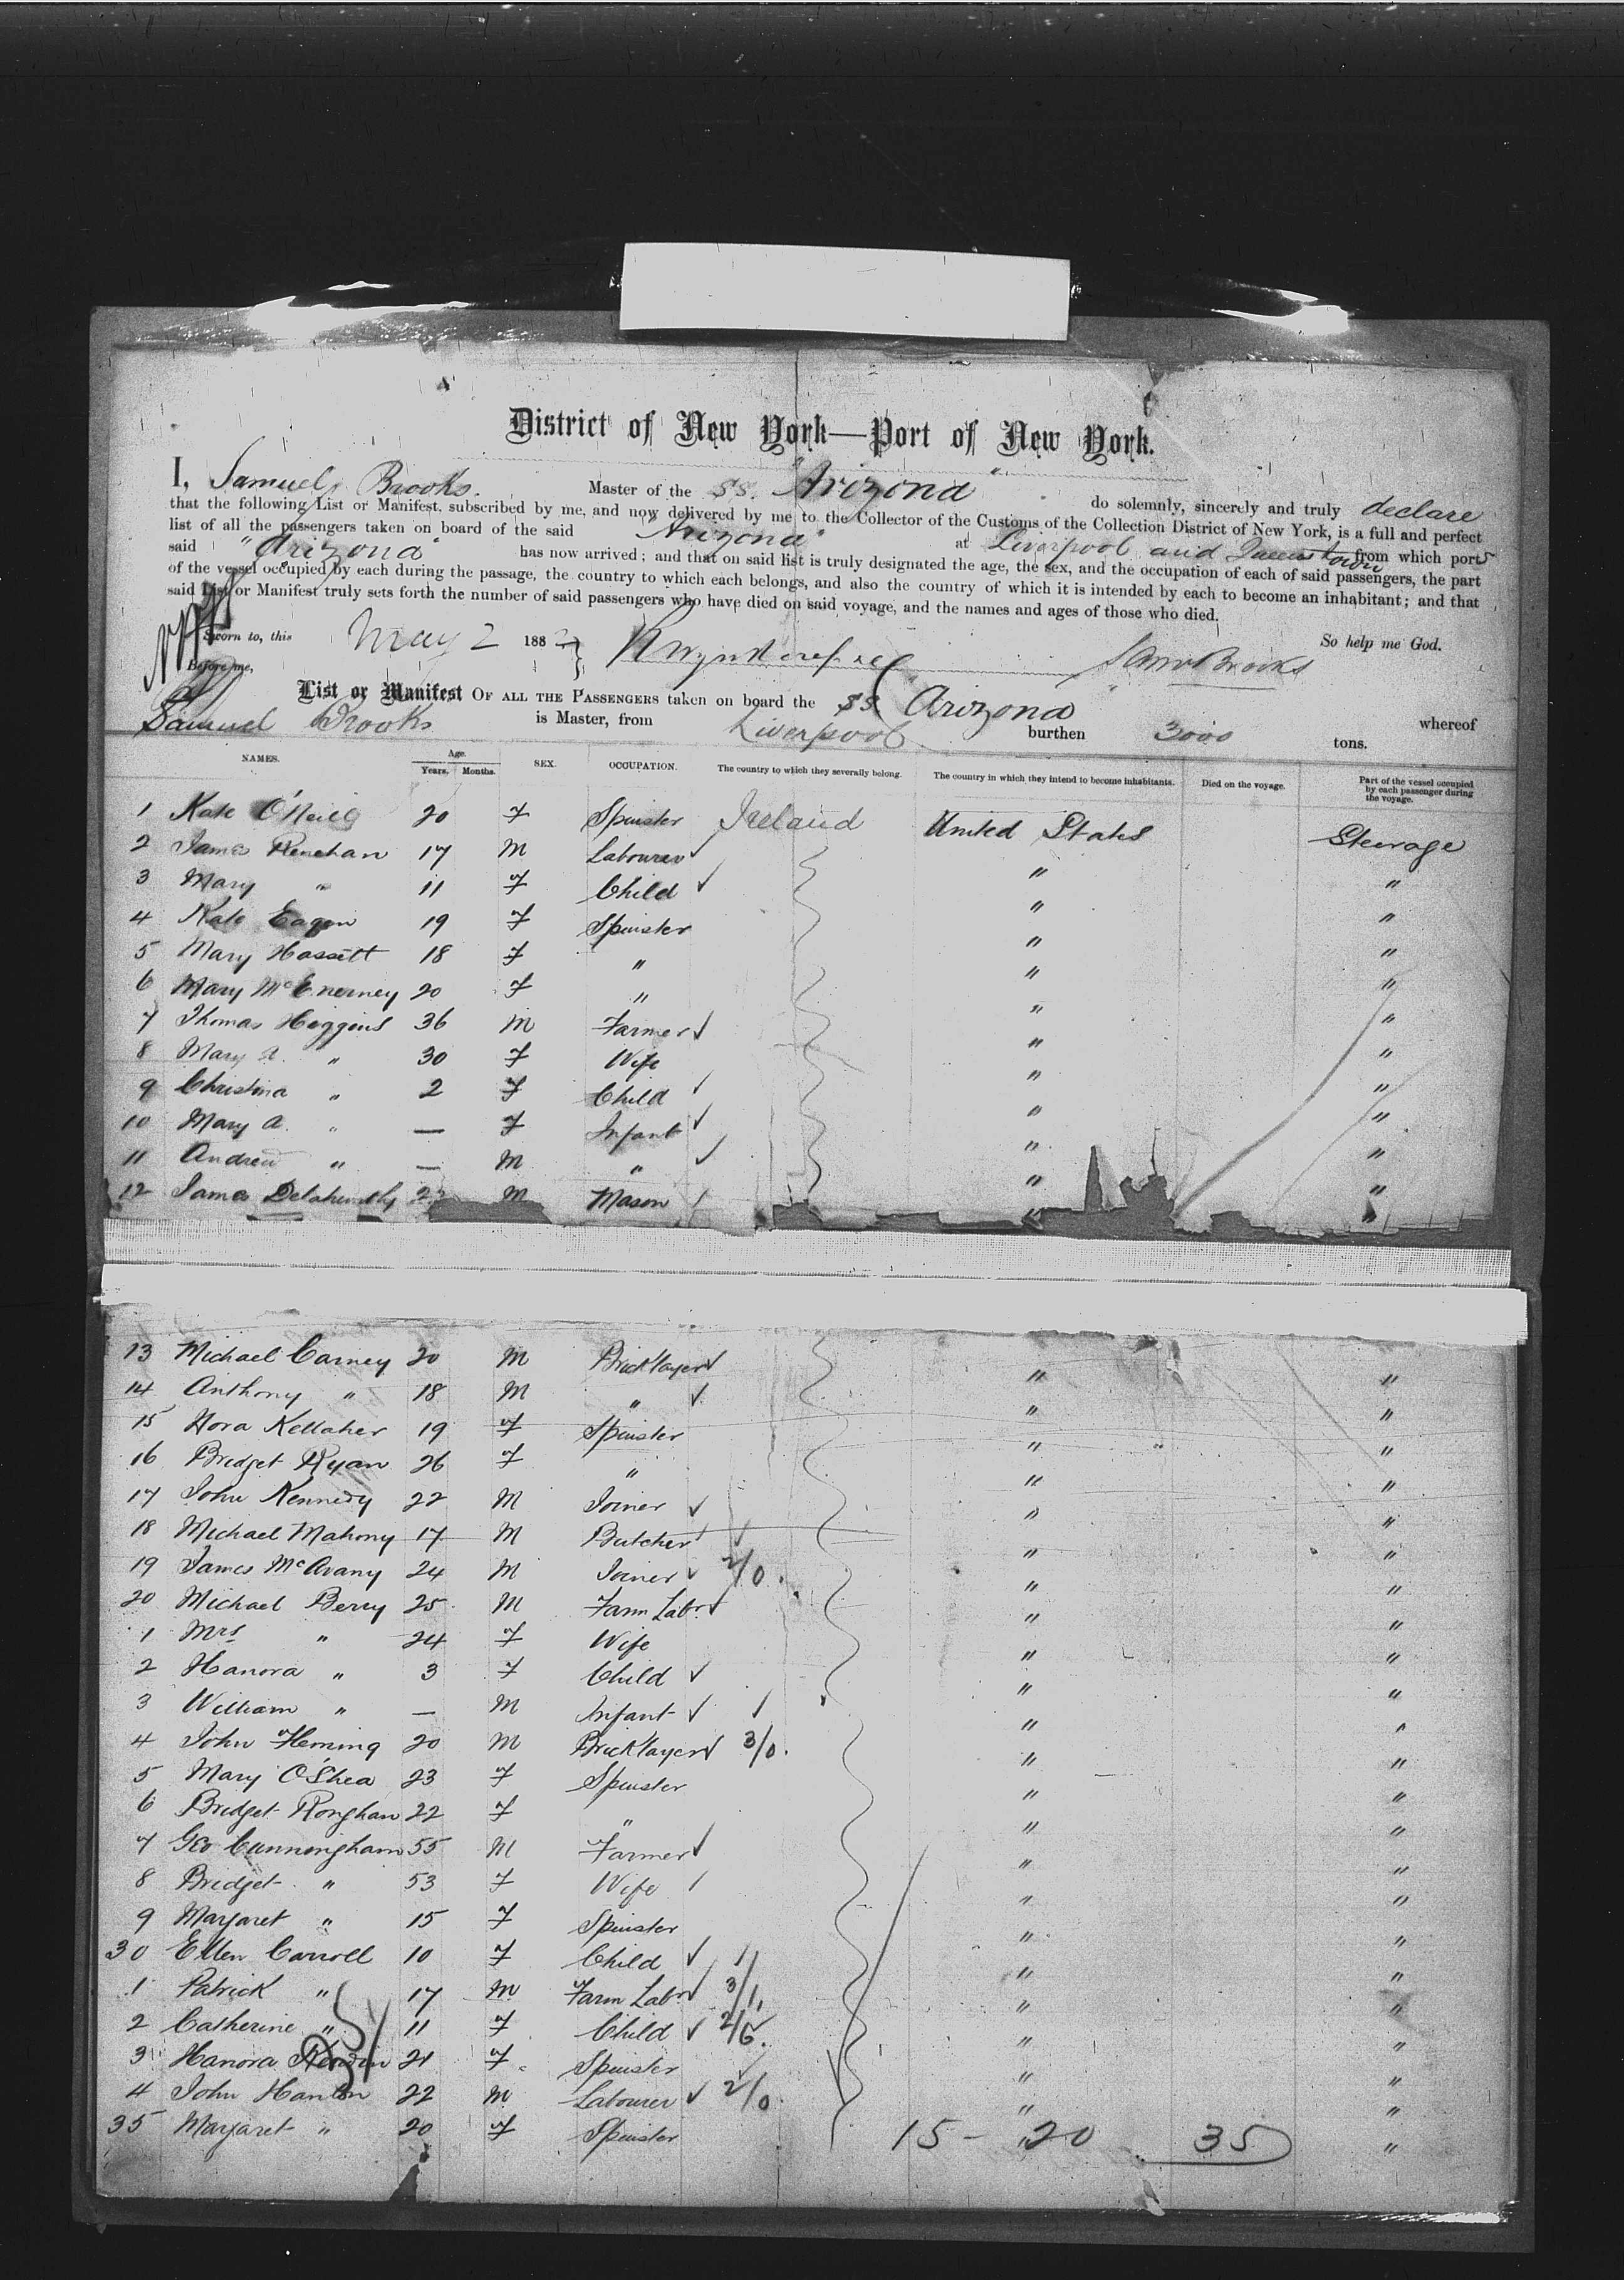 District of New York—Port of New York.
I, Samuel Brooks. Master of the SS. "Arizona" do solemnly, sincerely and truly declare
that the following List or Manifest, subscribed by me, and now delivered by me to the Collector of the Customs of the Collection District of New York, is a full and perfect
list of all the passengers taken on board of the said "Arizona" at Liverpool and Queenstown from which ports
said "Arizona" has now arrived; and that on said list is truly designated the age, the sex, and the occupation of each of said passengers, the part
of the vessel occupied by each during the passage, the country to which each belongs, and also the country of which it is intended by each to become an inhabitant; and that
said List or Manifest truly sets forth the number of said passengers who have died on said voyage, and the names and ages of those who died.
So help me God.
Sworn to, this May 2 188 Saml Brooks
Before me,
List or Manifest OF ALL THE PASSENGERS taken on board the SS. Arizona whereof
Samuel Brooks is Master, from Liverpool burthen 3000 tons.
NAMES. Age. Years. Months. SEX. OCCUPATION. The country to which they severally belong. The country in which they intend to become inhabitants. Died on the voyage. Part of the vessel occupied by each passenger during the voyage.
1 Kate O'Neill 20 F Spinster Ireland United States Steerage
2 James Renehan 17 M Labourer " "
3 Mary " 11 F Child " "
4 Kate Eagan 19 F Spinster " "
5 Mary Hassett 18 F " " "
6 Mary McEnerney 20 F " " "
7 Thomas Higgins 36 M Farmer " "
8 Mary A. " 30 F Wife " "
9 Christina " 2 F Child " "
10 Mary A. " — F Infant " "
11 Andrew " — M " " "
12 James M Mason " "
13 Michael Carney 20 M Bricklayer " "
14 Anthony " 18 M " " "
15 Nora Kellaher 19 F Spinster " "
16 Bridget Ryan 26 F " " "
17 John Kennedy 22 M Joiner " "
18 Michael Mahony 17 M Butcher " "
19 James McAvany 24 M Joiner 2/0. " "
20 Michael Berry 25 M Farm Labr " "
1 Mrs " 24 F Wife " "
2 Hanora " 3 F Child " "
3 William " — M Infant " "
4 John Fleming 20 M Bricklayer 3/0. " "
5 Mary O'Shea 23 F Spinster " "
6 Bridget Ronghan 22 F " " "
7 Geo Cunningham 55 M Farmer " "
8 Bridget " 53 F Wife " "
9 Margaret " 15 F Spinster " "
30 Ellen Carroll 10 F Child " "
1 Patrick " 17 M Farm Labr 3/1, " "
2 Catherine " 11 F Child " "
3 Hanora 21 F Spinster " "
4 John Hanlon 22 M Labourer 2/0. " "
35 Margaret " 20 F Spinster 15 - 20 35 "